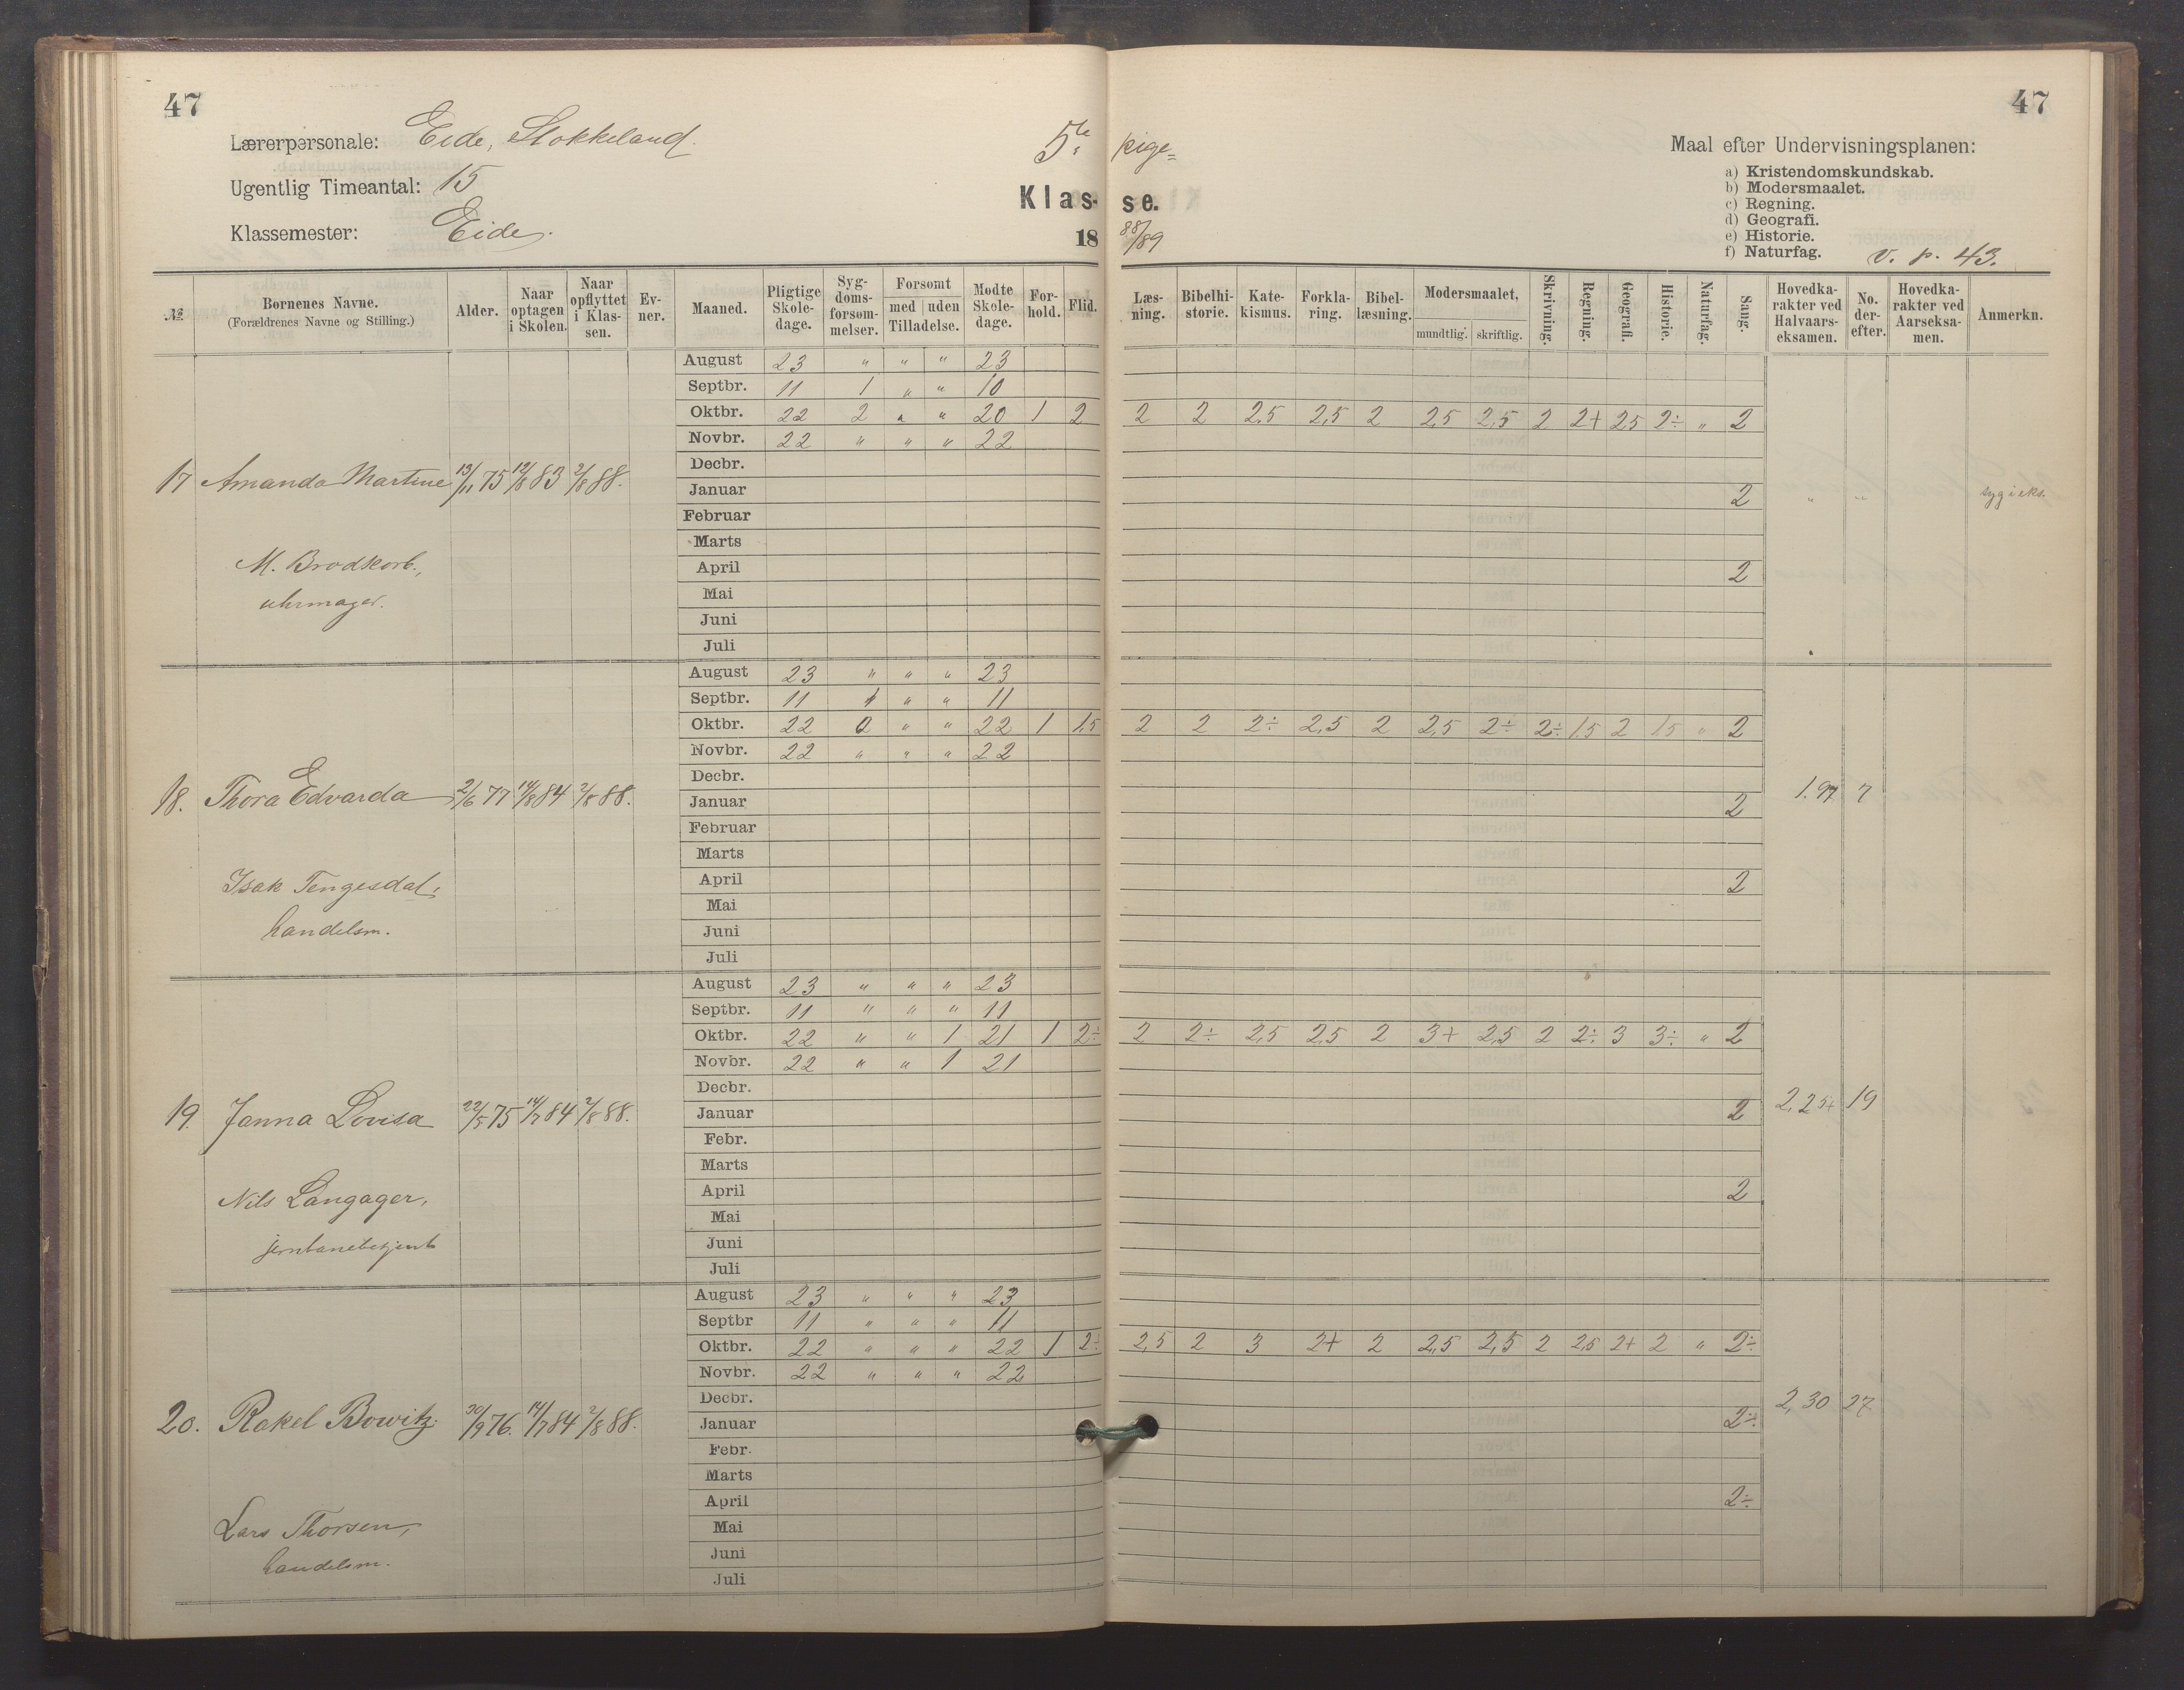 47
47
Lærerpersonale: Eide, Stokkeland.
5te pige=
Ugentlig Timeantal: 15
Klas- se.
Klassemester: Eide.
18 88/89
Maal efter Undervisningsplanen:
a) Kristendomskundskab.
b) Modersmaalet.
c) Regning.
d) Geografi.
e) Historie.
f) Naturfag. v. p. 43.
№ Børnenes Navne. (Forældrenes Navne og Stilling.) Alder. Naar optagen i Skolen. Naar opflyttet i Klassen. Evner. Maaned. Pligtige Skoledage. Sygdomsforsømmelser. Forsømt med uden Tilladelse. Mødte Skoledage. Forhold. Flid. Læsning. Bibelhistorie. Katekismus. Forklaring. Bibellæsning. Modersmaalet, mundtlig. skriftlig. Skrivning. Regning. Geografi. Historie. Naturfag. Sang. Hovedkarakter ved Halvaarseksamen. No. derefter. Hovedkarakter ved Aarseksamen. Anmerkn.
August 23 " " " 23
Septbr. 11 1 " " 10
Oktbr. 22 2 " " 20 1 2 2 2 2,5 2,5 2 2,5 2,5 2 2+ 2,5 2÷ " 2
Novbr. 22 " " " 22
Decbr.
17 Amanda Martine 13/11 75 12/8 83 2/8 88.
Januar 2 " " syg i eks.
Februar
Marts
M. Brodkorb.,
April 2
uhrmager.
Mai
Juni
Juli
August 23 " " " 23
Septbr. 11 " " 11
Oktbr. 22 0 " " 22 1 1,5 2 2 2÷ 2,5 2 2,5 2÷ 2÷ 1,5 2 1,5 " 2
Novbr. 22 " " " 22
Decbr.
18. Thora Edvarda 2/6 77 14/8 84 2/8 88. 1.97 7
Januar 2
Februar
Marts
Isak Tengesdal,
April 2
handelsm.
Mai
Juni
Juli
August 23 " " " 23
Septbr. 11 " " " 11
Oktbr. 22 " " 1 21 1 2÷ 2 2÷ 2,5 2,5 2 3+ 2,5 2 2÷ 3 3÷ " 2
Novbr. 22 " " 1 21
Decbr.
19. Janna Lovisa 22/5 75 14/7 84 2/8 88. 2,25+ 19
Januar 2
Febr.
Marts
Nils Langager,
April 2
jernbanebetjent
Mai
Juni
Juli
August 23 " " " 23
Septbr 11 " " " 11
Oktbr. 22 " " " 22 1 2÷ 2,5 2 3 2+ 2 2,5 2,5 2 2,5 2+ 2 " 2÷
Novbr. 22 " " " 22
Decbr.
20. Rakel Bowitz. 30/9 76. 14/7 84 2/8 88. 2,30 27
Januar 2÷
Febr.
Marts
April 2÷
Lars Thorsen,
Mai
handelsm.
Juni
Juli